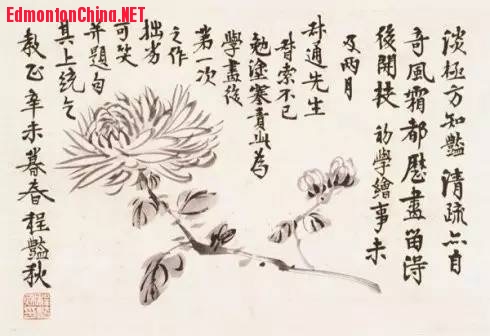 EdmontonChina.NET
淡極方知豔清疏亦自
奇風霜都歷盡留得
後開枝 初學繪事未
及兩月
叔通先生
督索不已
勉塗塞責此為
學畫後
第一次
之作
拙劣
可笑
并題句
其上統乞
教正辛未暮春程豔秋